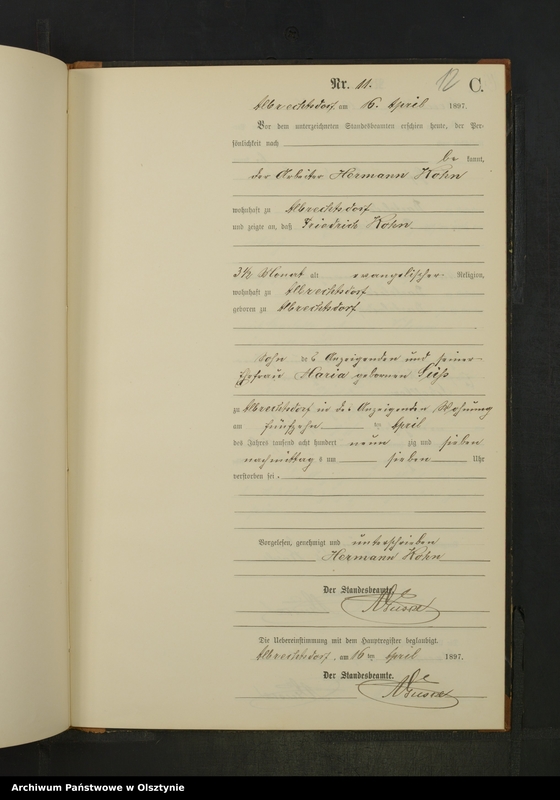 Nr. 11.
12
C.
Albrechtsdorf am 16. April 1897.
Vor dem unterzeichneten Standesbeamten erschien heute, der Per-
sönlichkeit nach
be kannt,
der Arbeiter Hermann Kohn
wohnhaft zu Albrechtsdorf
und zeigte an, daß Friedrich Kohn
3½ Monat alt evangelischer Religion,
wohnhaft zu Albrechtsdorf
geboren zu Albrechtsdorf
Sohn des Anzeigenden und seiner
Ehefrau Maria geborenen
zu Albrechtsdorf in des Anzeigenden Wohnung
am fünfzehn ten April
des Jahres tausend acht hundert neun zig und sieben
nachmittag s um sieben Uhr
verstorben sei.
Vorgelesen, genehmigt und unterschrieben
Hermann Kohn
Der Standesbeamte.
Die Uebereinstimmung mit dem Hauptregister beglaubigt.
Albrechtsdorf, am 16 ten April 1897.
Der Standesbeamte.
Archiwum Państwowe w Olsztynie